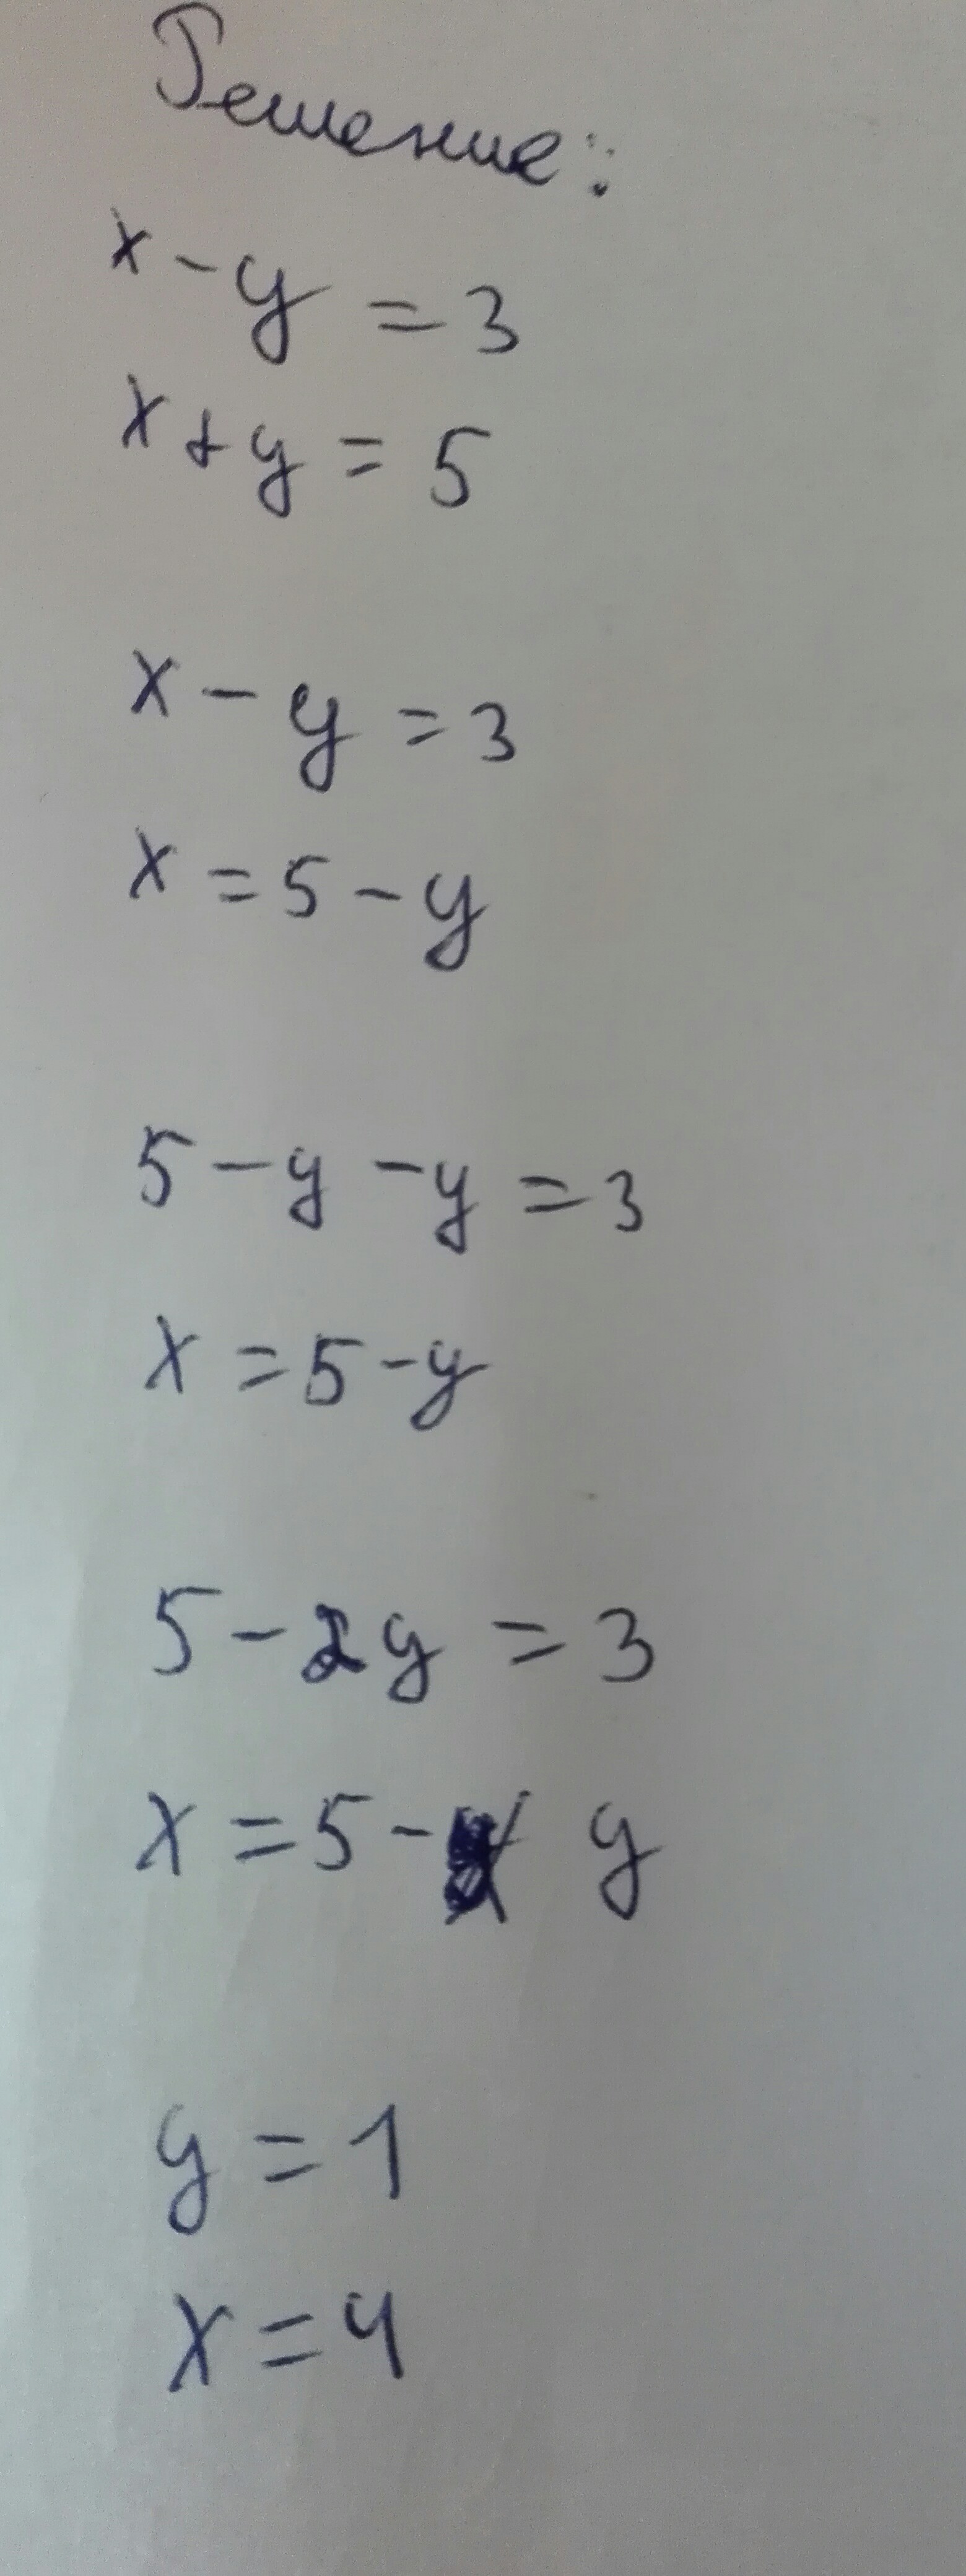 Решение:
x - y = 3
x + y = 5
x - y = 3
x = 5 - y
5 - y - y = 3
x = 5 - y
5 - 2y = 3
x = 5 - y
y = 1
x = 4